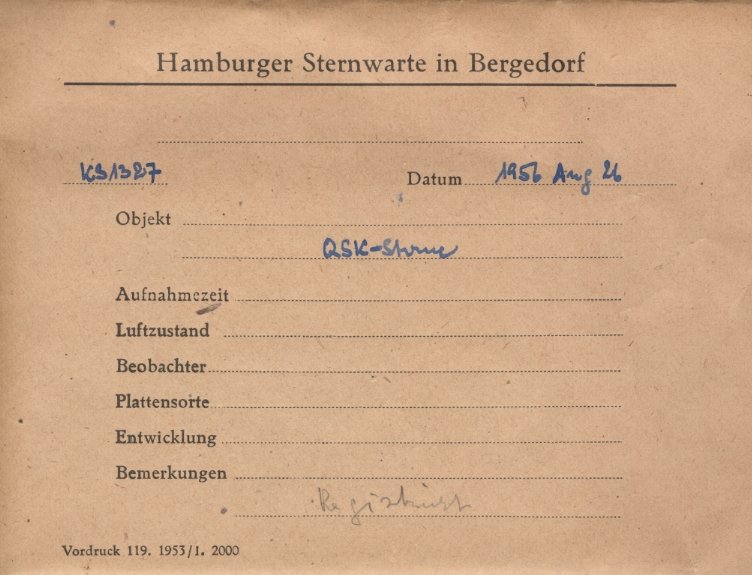 Hamburger Sternwarte in Bergedorf
KS1327 Datum 1956 Aug 26
Objekt
QSK-Sterne
Aufnahmezeit
Luftzustand
Beobachter
Plattensorte
Entwicklung
Bemerkungen
Registriert
Vordruck 119. 1953/1. 2000